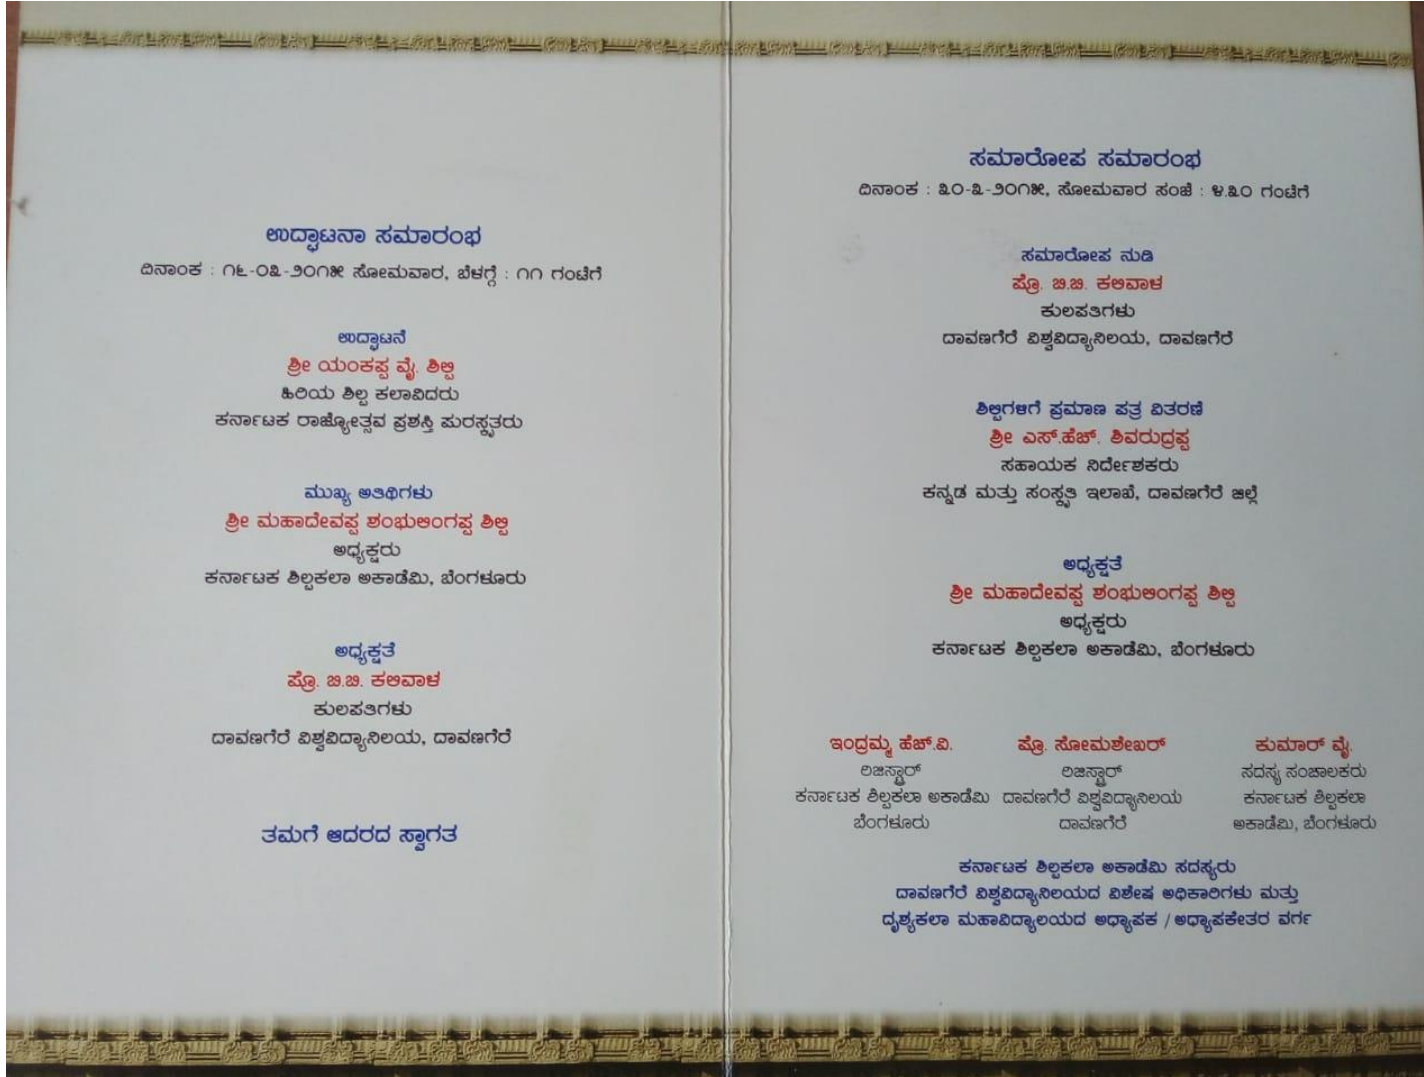 ಉದ್ಘಾಟನಾ ಸಮಾರಂಭ
ದಿನಾಂಕ : ೧೬-೦೩-೨೦೧೫ ಸೋಮವಾರ, ಬೆಳಗ್ಗೆ : ೧೧ ಗಂಟೆಗೆ
ಉದ್ಘಾಟನೆ
ಶ್ರೀ ಯಂಕಪ್ಪ ವೈ. ಶಿಲ್ಪಿ
ಹಿರಿಯ ಶಿಲ್ಪ ಕಲಾವಿದರು
ಕರ್ನಾಟಕ ರಾಜ್ಯೋತ್ಸವ ಪ್ರಶಸ್ತಿ ಪುರಸ್ಕೃತರು
ಮುಖ್ಯ ಅತಿಥಿಗಳು
ಶ್ರೀ ಮಹಾದೇವಪ್ಪ ಶಂಭುಲಿಂಗಪ್ಪ ಶಿಲ್ಪಿ
ಅಧ್ಯಕ್ಷರು
ಕರ್ನಾಟಕ ಶಿಲ್ಪಕಲಾ ಅಕಾಡೆಮಿ, ಬೆಂಗಳೂರು
ಅಧ್ಯಕ್ಷತೆ
ಪ್ರೊ. ಬಿ.ಬಿ. ಕಲಿವಾಳ
ಕುಲಪತಿಗಳು
ದಾವಣಗೆರೆ ವಿಶ್ವವಿದ್ಯಾನಿಲಯ, ದಾವಣಗೆರೆ
ತಮಗೆ ಆದರದ ಸ್ವಾಗತ
ಸಮಾರೋಪ ಸಮಾರಂಭ
ದಿನಾಂಕ : ೩೦-೩-೨೦೧೫, ಸೋಮವಾರ ಸಂಜೆ : ೪.೩೦ ಗಂಟೆಗೆ
ಸಮಾರೋಪ ನುಡಿ
ಪ್ರೊ. ಬಿ.ಬಿ. ಕಲಿವಾಳ
ಕುಲಪತಿಗಳು
ದಾವಣಗೆರೆ ವಿಶ್ವವಿದ್ಯಾನಿಲಯ, ದಾವಣಗೆರೆ
ಶಿಲ್ಪಿಗಳಿಗೆ ಪ್ರಮಾಣ ಪತ್ರ ವಿತರಣೆ
ಶ್ರೀ ಎಸ್.ಹೆಚ್. ಶಿವರುದ್ರಪ್ಪ
ಸಹಾಯಕ ನಿರ್ದೇಶಕರು
ಕನ್ನಡ ಮತ್ತು ಸಂಸ್ಕೃತಿ ಇಲಾಖೆ, ದಾವಣಗೆರೆ ಜಿಲ್ಲೆ
ಅಧ್ಯಕ್ಷತೆ
ಶ್ರೀ ಮಹಾದೇವಪ್ಪ ಶಂಭುಲಿಂಗಪ್ಪ ಶಿಲ್ಪಿ
ಅಧ್ಯಕ್ಷರು
ಕರ್ನಾಟಕ ಶಿಲ್ಪಕಲಾ ಅಕಾಡೆಮಿ, ಬೆಂಗಳೂರು
ಇಂದ್ರಮ್ಮ ಹೆಚ್.ವಿ.
ರಿಜಿಸ್ಟ್ರಾರ್
ಕರ್ನಾಟಕ ಶಿಲ್ಪಕಲಾ ಅಕಾಡೆಮಿ
ಬೆಂಗಳೂರು
ಪ್ರೊ. ಸೋಮಶೇಖರ್
ರಿಜಿಸ್ಟ್ರಾರ್
ದಾವಣಗೆರೆ ವಿಶ್ವವಿದ್ಯಾನಿಲಯ
ದಾವಣಗೆರೆ
ಕುಮಾರ್ ವೈ.
ಸದಸ್ಯ ಸಂಚಾಲಕರು
ಕರ್ನಾಟಕ ಶಿಲ್ಪಕಲಾ
ಅಕಾಡೆಮಿ, ಬೆಂಗಳೂರು
ಕರ್ನಾಟಕ ಶಿಲ್ಪಕಲಾ ಅಕಾಡೆಮಿ ಸದಸ್ಯರು
ದಾವಣಗೆರೆ ವಿಶ್ವವಿದ್ಯಾನಿಲಯದ ವಿಶೇಷ ಅಧಿಕಾರಿಗಳು ಮತ್ತು
ದೃಶ್ಯಕಲಾ ಮಹಾವಿದ್ಯಾಲಯದ ಅಧ್ಯಾಪಕ / ಅಧ್ಯಾಪಕೇತರ ವರ್ಗ